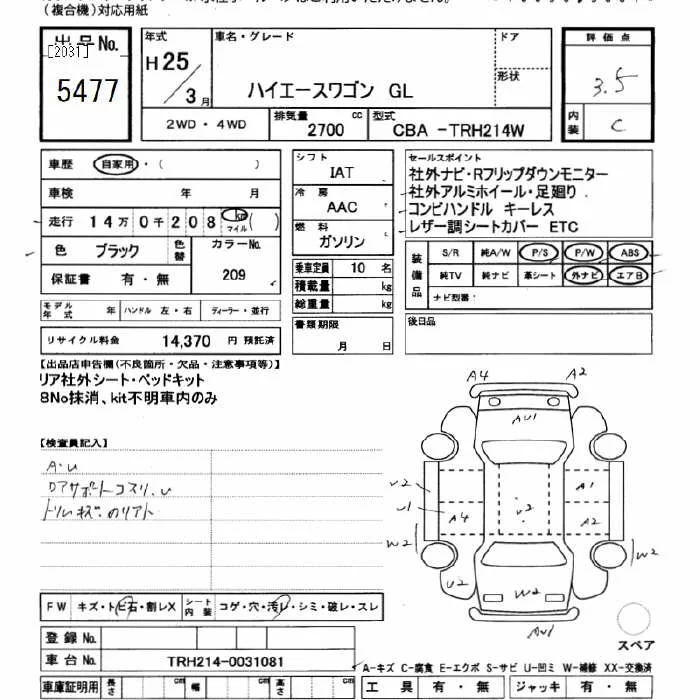 (複合機)対応用紙
出品No. [2031]
5477
年式 H25/3月
車名・グレード
ハイエースワゴン GL
ドア
形状
評価点
3.5
内装 C
2WD・4WD
排気量 2700 cc
型式 CBA -TRH214W
車歴 自家用・( )
車検 年 月
走行 14万0千208 km マイル ( )
色 ブラック 色替 カラーNo. 209
保証書 有・無
シフト IAT
冷房 AAC
燃料 ガソリン
乗車定員 10 名
積載量 kg
総重量 kg
セールスポイント
社外ナビ・Rフリップダウンモニター
社外アルミホイール・足廻り
コンビハンドル キーレス
レザー調シートカバー ETC
装備品 S/R 純A/W P/S P/W ABS
純TV 純ナビ 革シート 外ナビ エアB
ナビ型番:
モデル年式 年 ハンドル 左・右 ディーラー・並行
書類期限 月 日
後日品
リサイクル料金 14,370 円 預託済
【出品店申告欄(不良箇所・欠品・注意事項等)】
リア社外シート・ベッドキット
8No抹消、kit不明車内のみ
【検査員記入】
A・U
ロアサポートコスリ、U
A4 A2
AU1
U2 A1
U1 A4 U2 A2
W2 W2
U2 W2
AU1
スペア
FW キズ・トビ石・割レX シート内装 コゲ・穴・汚レ・シミ・破レ・スレ
登録No.
車台No. TRH214-0031081
A-キズ C-腐食 E-エクボ S-サビ U-凹ミ W-補修 XX-交換済
車庫証明用 長さ cm 幅 cm 高さ cm
工具 有・無 ジャッキ 有・無